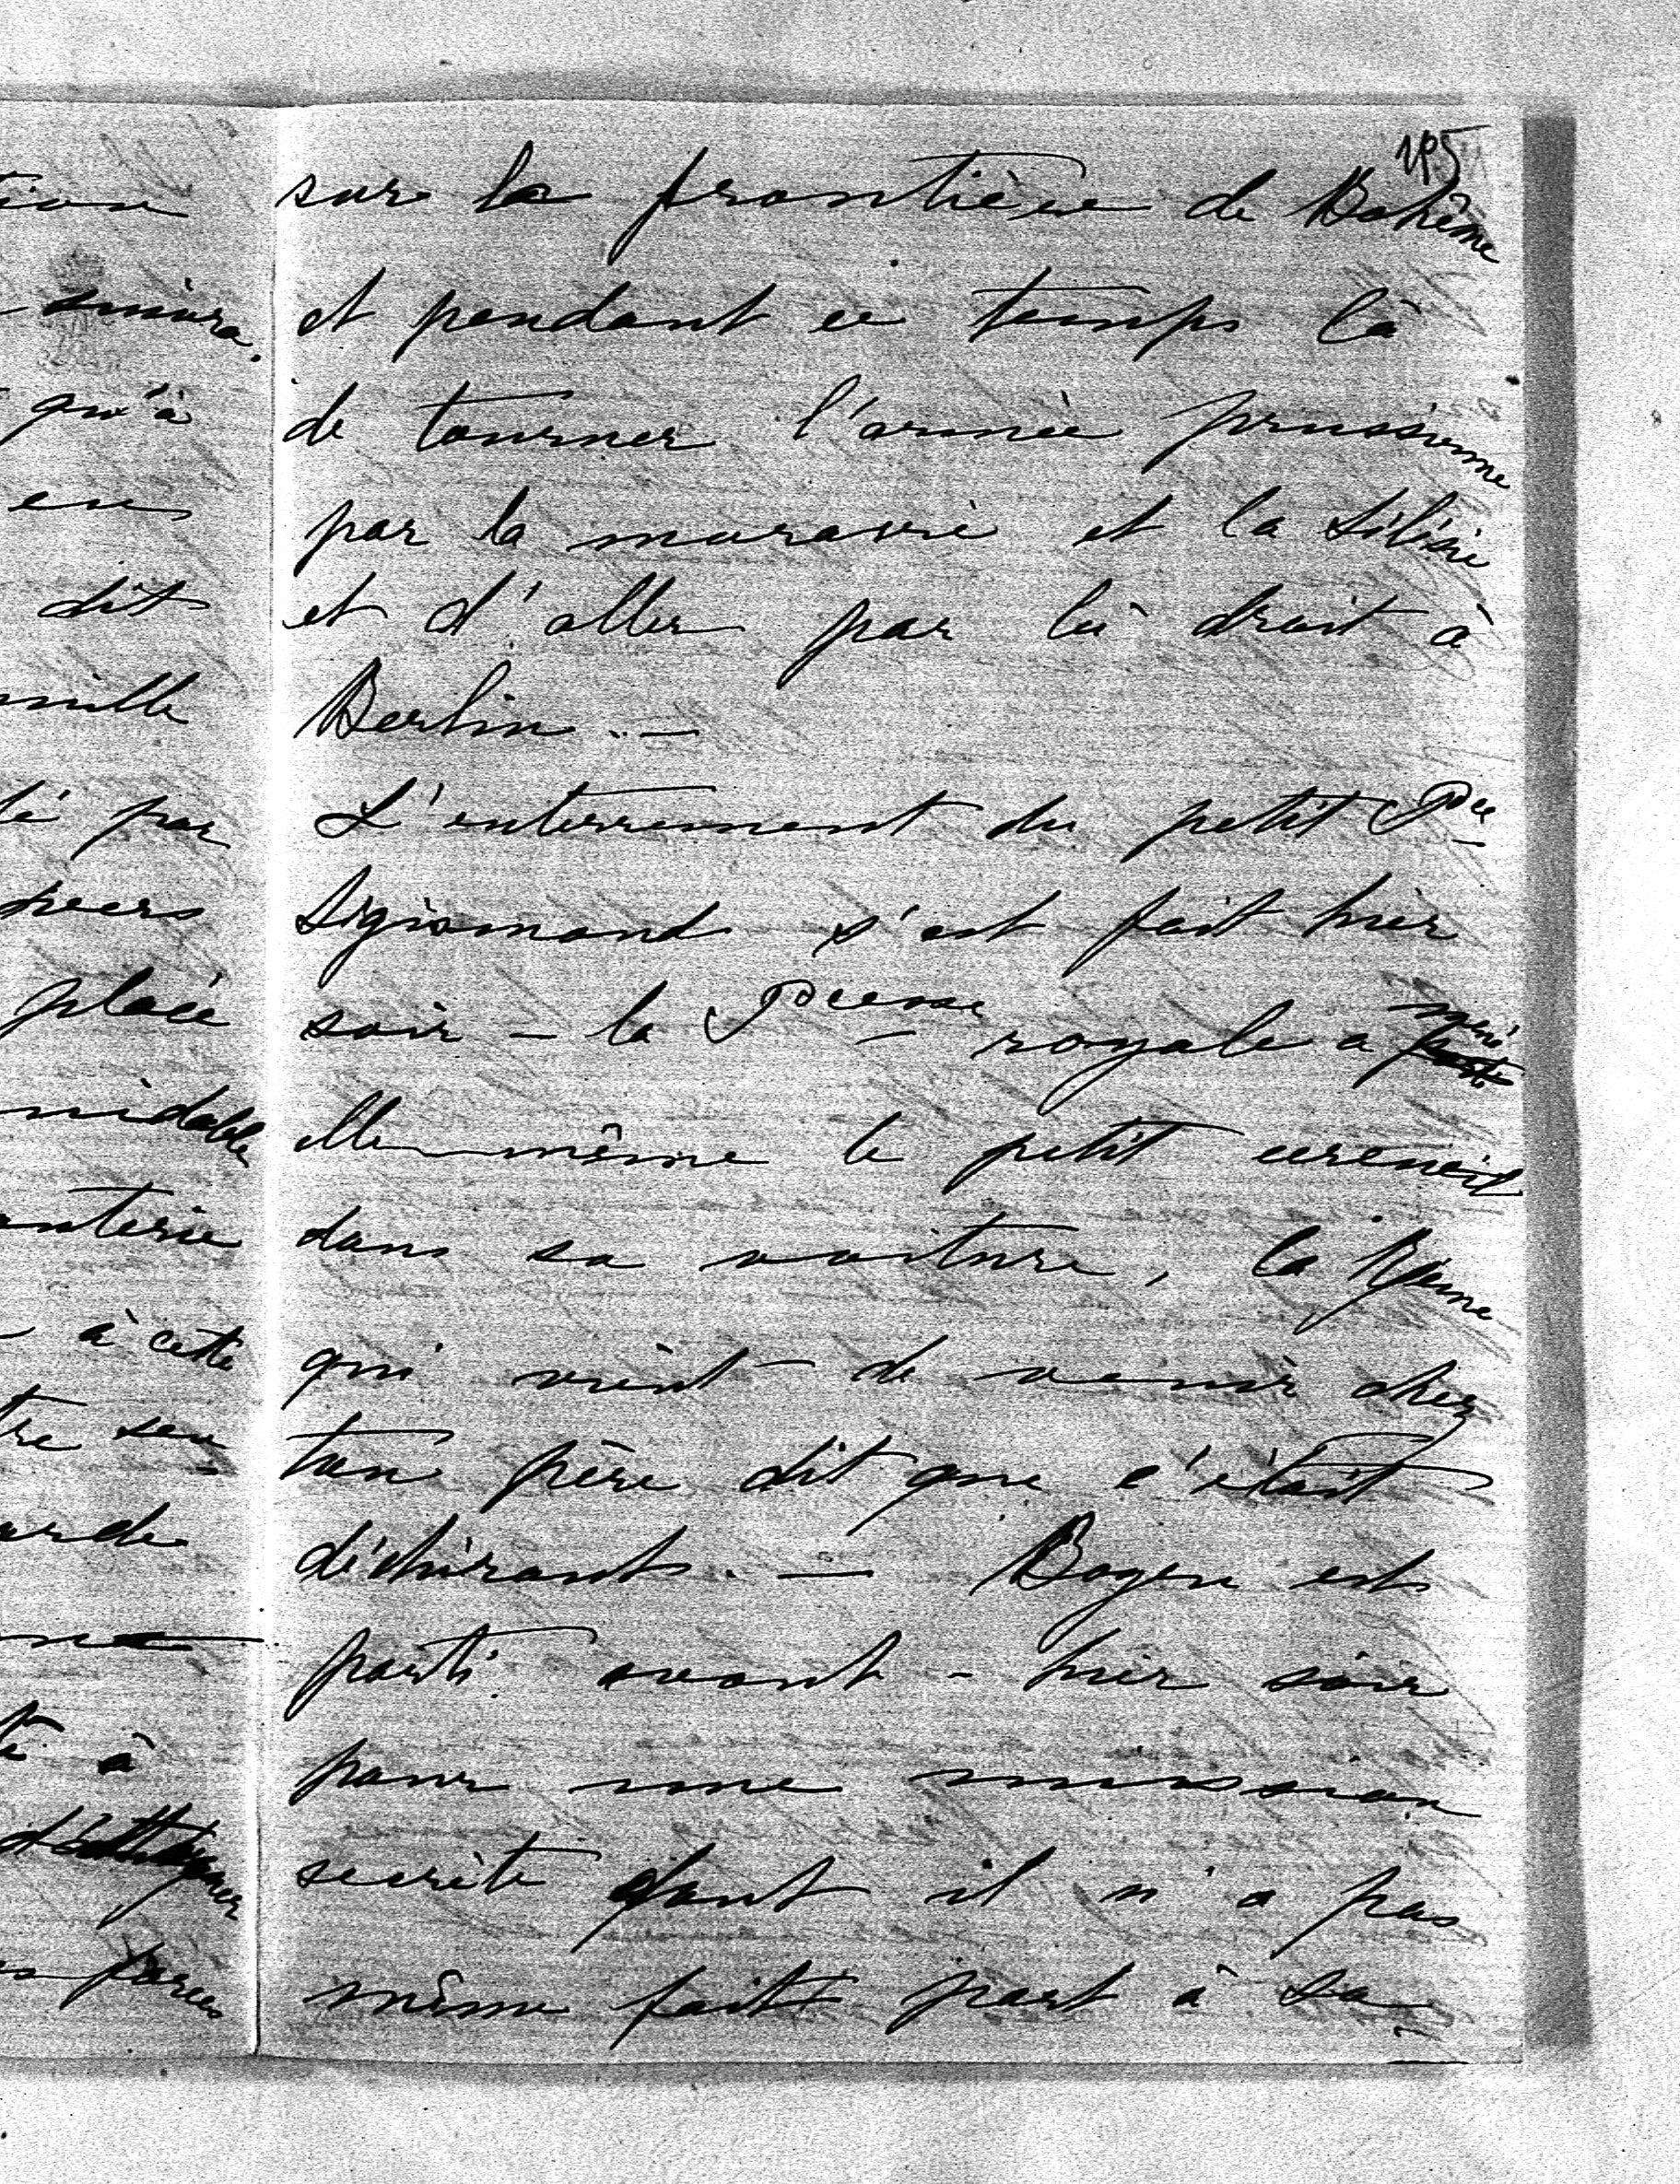 195
sur la frontière de Bohême
et pendant ce temps là
de tourner l'armée prussienne
par la moravie et la Silésie
et d'aller par là droit à
Berlin. —
L'enterrement du petit Pce
Sigismond s'est fait hier
soir – la Pcesse royale a mené
elle-même le petit cercueil
dans sa voiture, la Reine
qui vient de venir chez
ton père dit que c'était
déchirant. — Boyen est
parti avant-hier soir
pour une mission
secrète dont il n'a pas
même fait part à sa
suivra.
qu'à
en
dit
mille
par
placé
à cette
à